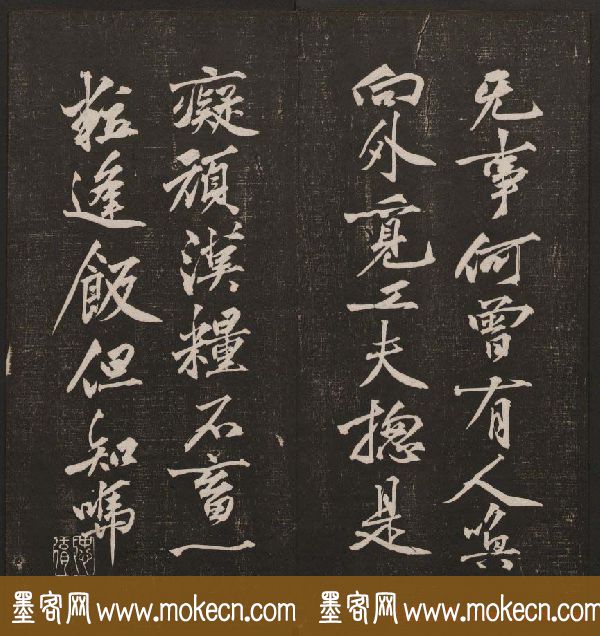 无事何曾有人喚
向外覓工夫揔是
癡頑漢糧不畜一
粒逢飯但知嗎
墨客网 www.mokecn.com 墨客网 www.mokecn.com